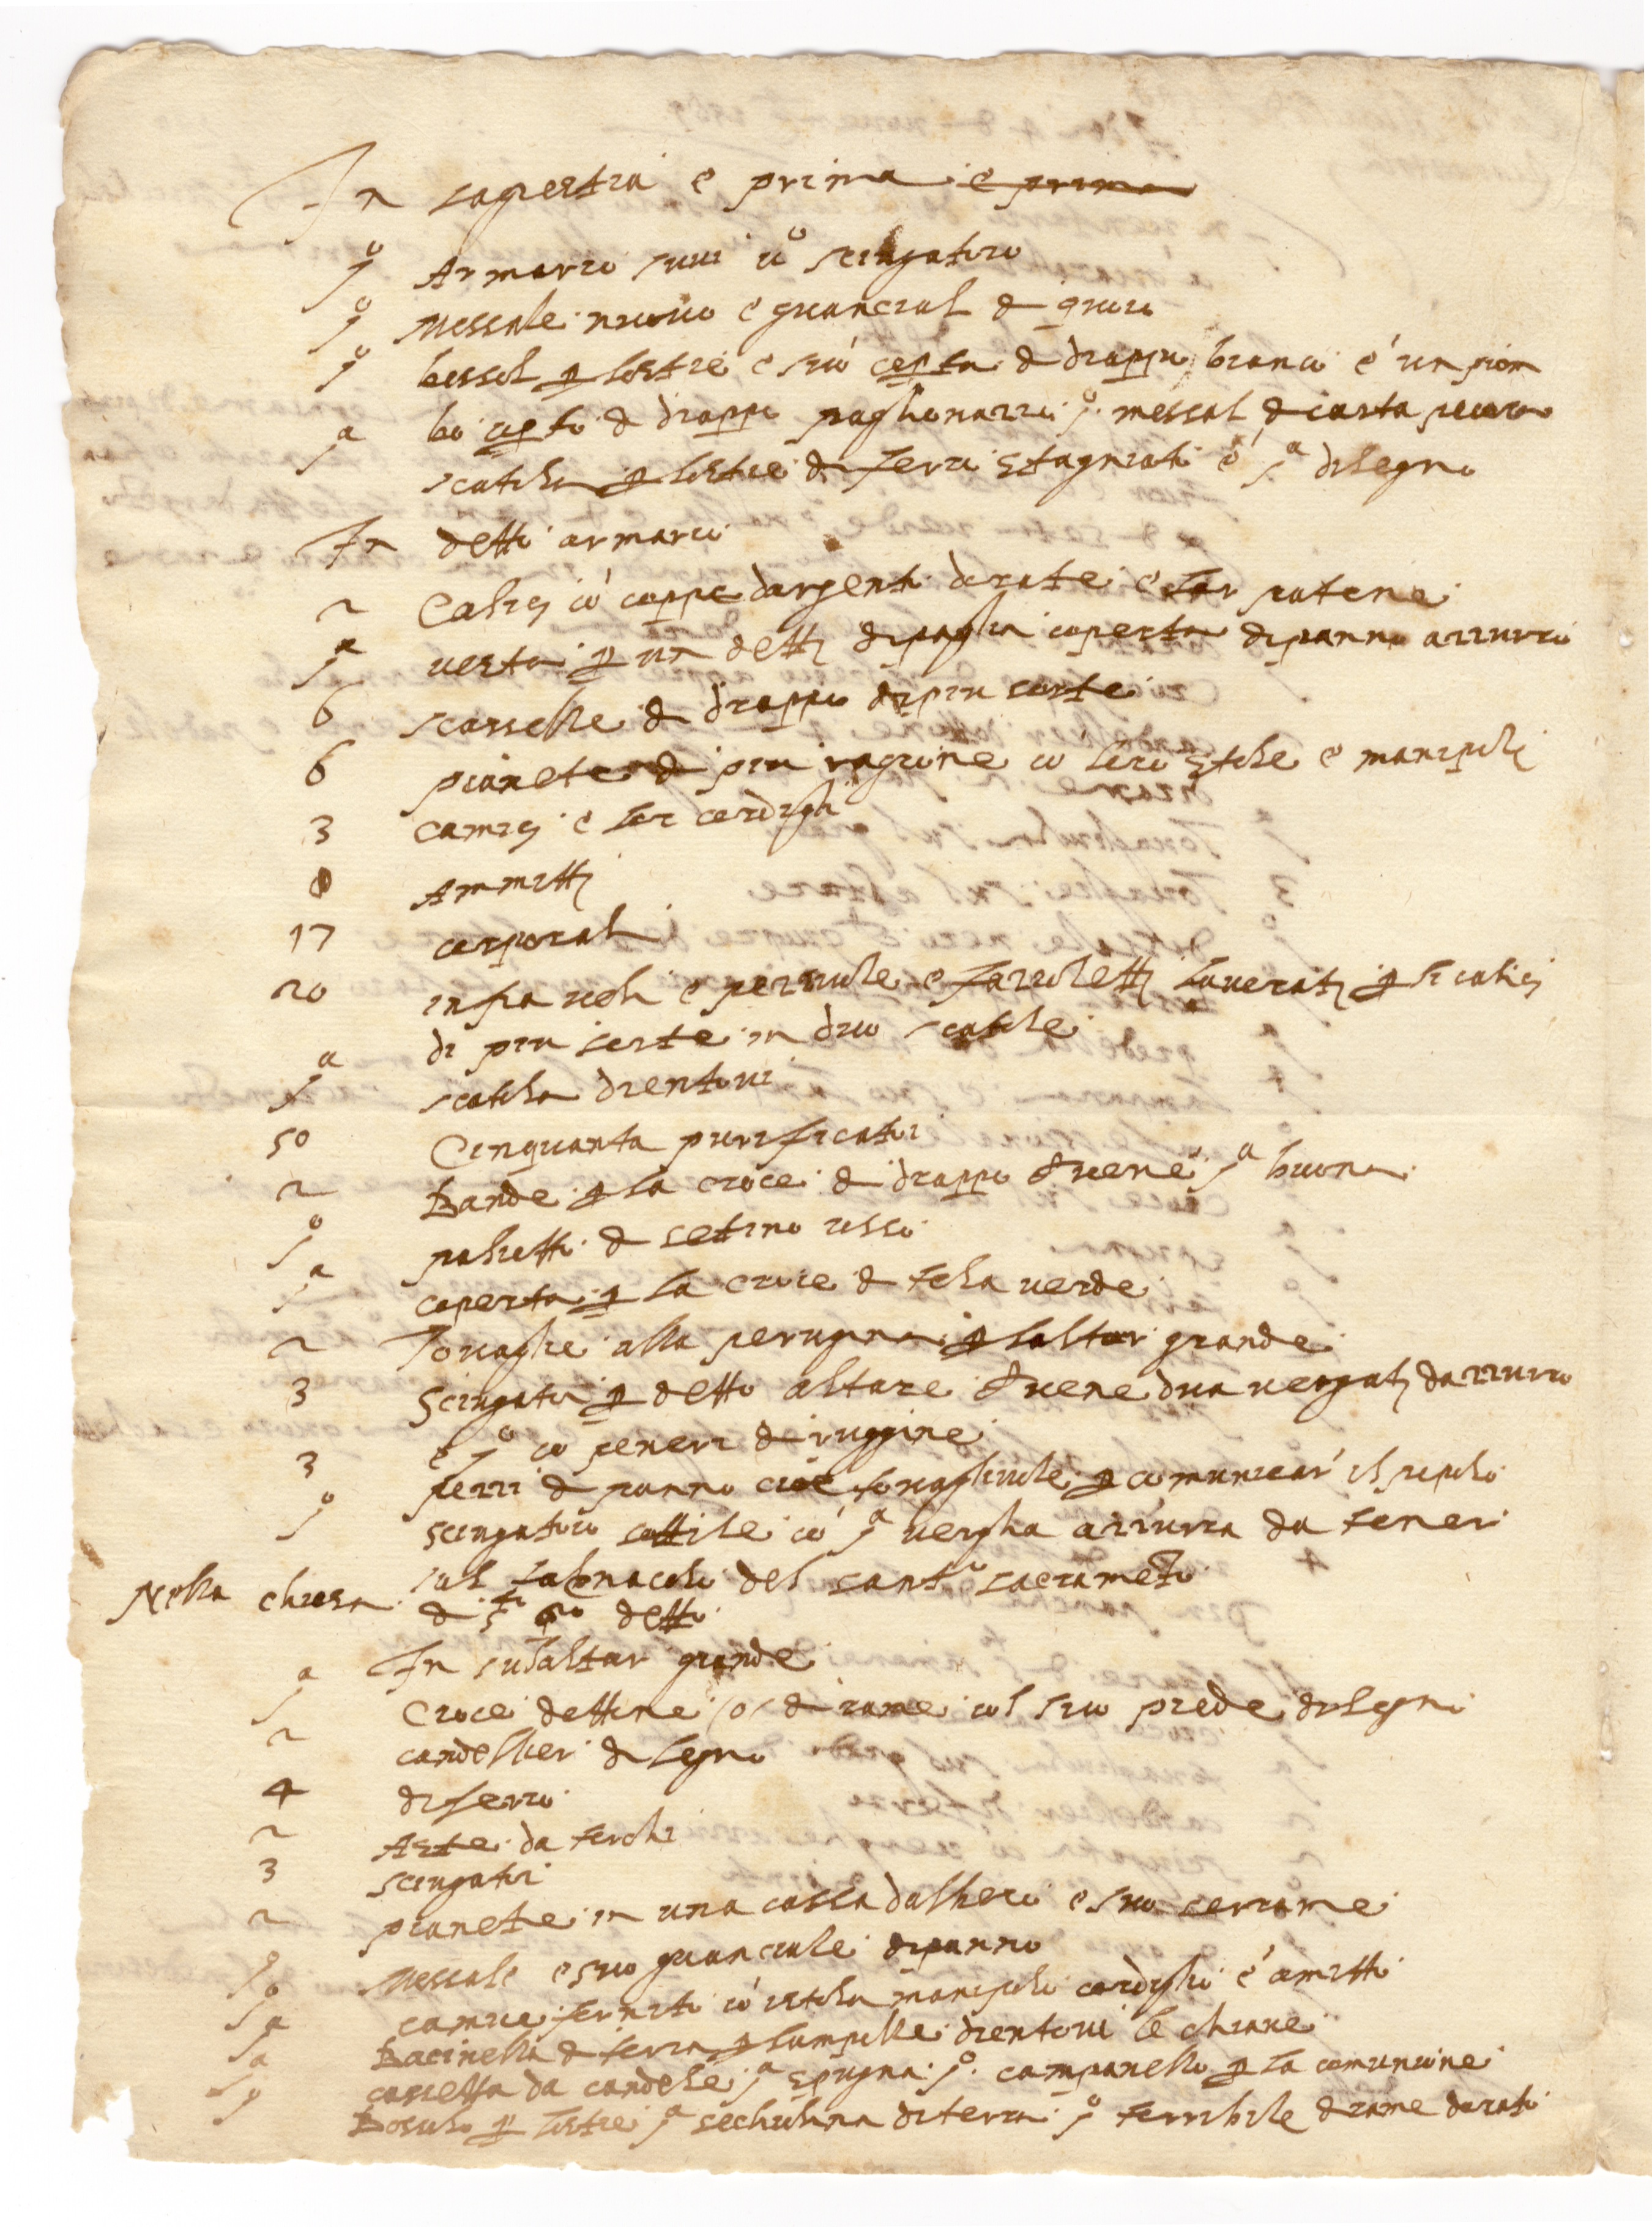 In sagrestia e prima e prima
1o Armario suui co sciugatoio
1o Messale nuouo e guancial di quoio
1o bossol p lostie e suo copto di drappo bianco e un piom
bo copto di drappo paghonazzo 1o messal di carta pecora
1a scatola p lostie di ferro stagniato e 1a di legno
In detto armario
2 Calici co coppe dargento dorate e lor patene
1a uesta p un detti di paglia coperta di panno azzurro
6 scarselle di drappo di piu sorte
6 pianete di piu ragione co loro stole e manipoli
3 camici e lor cordigli
8 Ammitti
17 corporali
20 infra ueli e pezzuole e fazzoletti lauorati p li calici
di piu sorte in duo scatole
1a scatola drentoui
50 Cinquanta purificatoi
2 Bande p la croce di drappo & uene 1a buona
1o paliotto di setino rosso
1a coperta p la croce di tela uerde
2 Touaglie alla perugina p laltar grande
3 Sciugatoi p detto altare & uene dua uergati dazzurro
e 1o co peneri di ruggine
3 pezzi di panno cioe touagliuole p comunicar il popolo
1o sciugatoio sottile co 1a uergha azzurra da tener
sul tabnacolo del santo sacrameto
Nella chiesa di sto detto
In sul altar grande
1a Croce dottone o di rame col suo piede di legno
2 candellier di legno
4 di ferro
2 Aste da torchi
3 sciugatoi
2 pianete in una cassa dalbero e suo serrame
1o Messale e suo guanciale di panno
1o camice fornito co istola manipolo cordiglio e amitto
1a Bacinella di terra p lampolle drentoui le chiaue
1a cassetta da candele 1a spugna 1o campanello p la comunione
1o Bosolo p lostie 1a sechiolina di terra 1o terribile di rame dorato